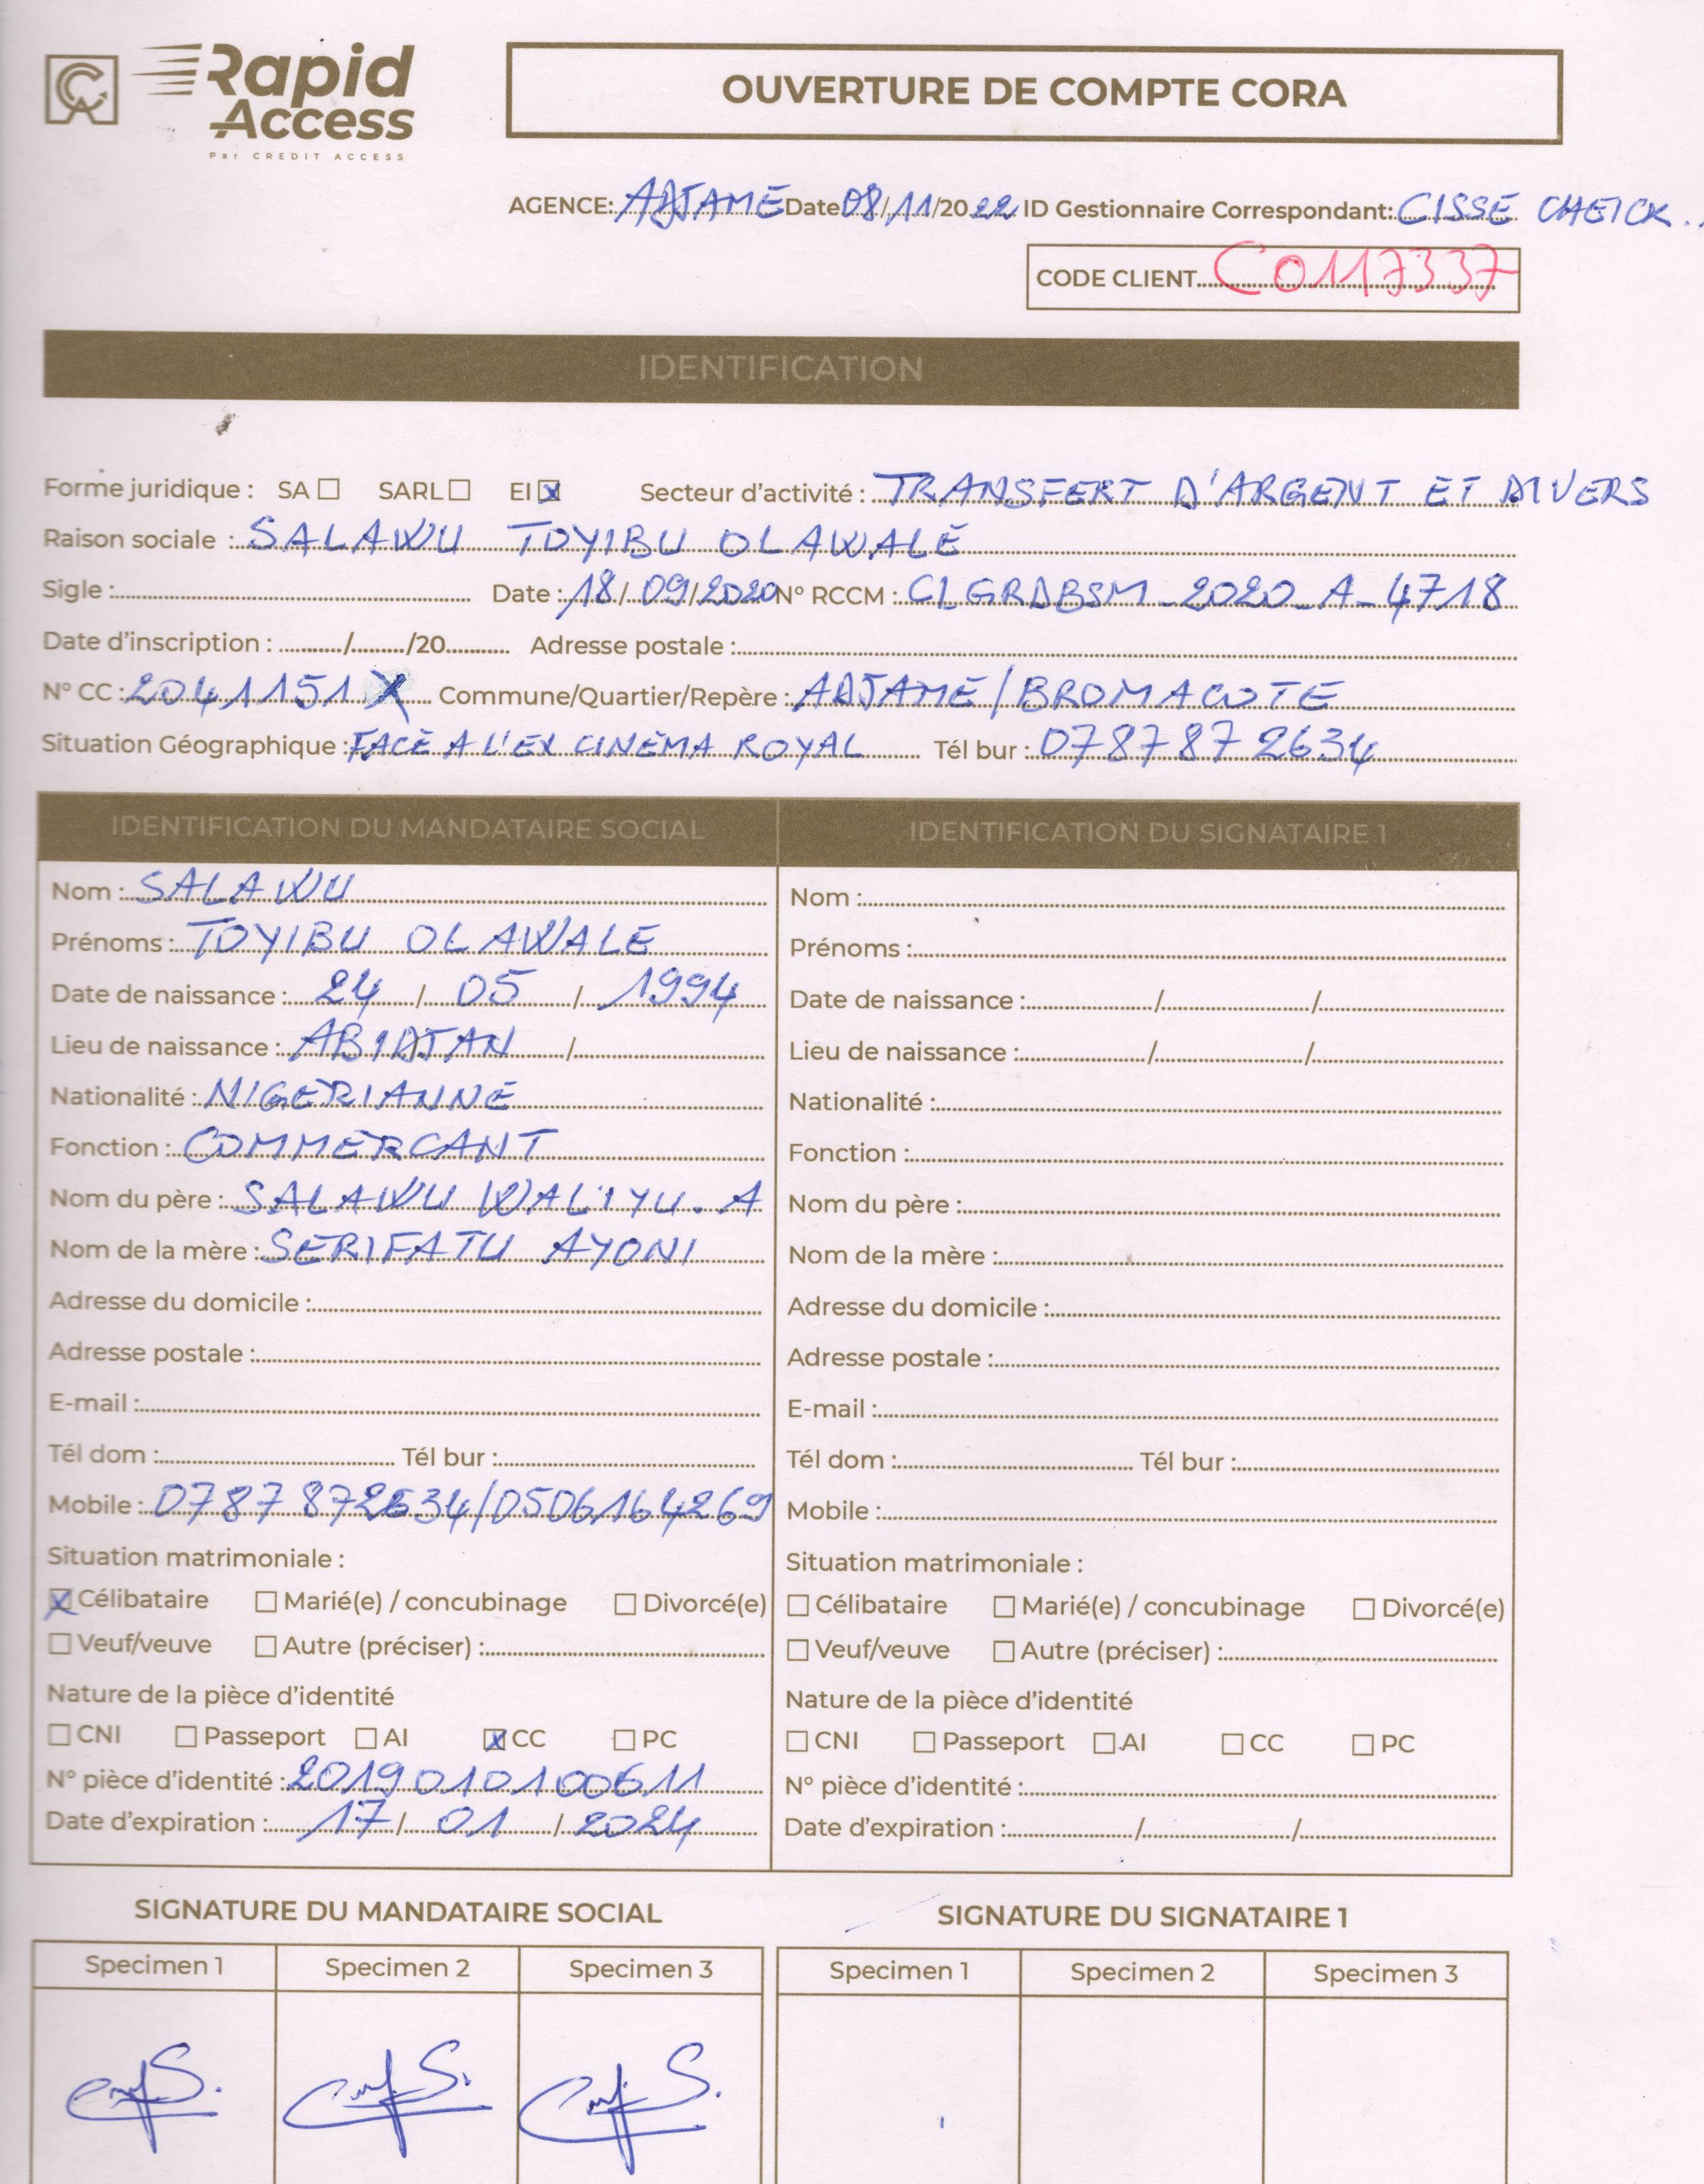 Rapid Access
Par CREDIT ACCESS
OUVERTURE DE COMPTE CORA
AGENCE: ADJAME Date 08/11/2022 ID Gestionnaire Correspondant: CISSE CHEICK..
CODE CLIENT C0117337
IDENTIFICATION
Forme juridique : SA ☐ SARL ☐ EI ☒ Secteur d'activité : TRANSFERT D'ARGENT ET DIVERS
Raison sociale : SALAWU TOYIBU OLAWALE
Sigle : Date : 18/09/2020 N° RCCM : CI GRDBSM_2020_A_4718
Date d'inscription : ........./........./20........... Adresse postale :
N° CC : 2041151 X Commune/Quartier/Repère : ADJAME/BROMACOTE
Situation Géographique : FACE A L'EX CINEMA ROYAL Tél bur : 0787872634
IDENTIFICATION DU MANDATAIRE SOCIAL
Nom : SALAWU
Prénoms : TOYIBU OLAWALE
Date de naissance : 24 / 05 / 1994
Lieu de naissance : ABIDJAN /
Nationalité : NIGERIANNE
Fonction : COMMERCANT
Nom du père : SALAWU WALIYU. A
Nom de la mère : SERIFATU AYONI
Adresse du domicile :
Adresse postale :
E-mail :
Tél dom : Tél bur :
Mobile : 0787872634/0506164269
Situation matrimoniale :
☒ Célibataire ☐ Marié(e) / concubinage ☐ Divorcé(e)
☐ Veuf/veuve ☐ Autre (préciser) :
Nature de la pièce d'identité
☐ CNI ☐ Passeport ☐ AI ☒ CC ☐ PC
N° pièce d'identité : 2019010100611
Date d'expiration : 17 / 01 / 2024
IDENTIFICATION DU SIGNATAIRE 1
Nom :
Prénoms :
Date de naissance : / /
Lieu de naissance : / /
Nationalité :
Fonction :
Nom du père :
Nom de la mère :
Adresse du domicile :
Adresse postale :
E-mail :
Tél dom : Tél bur :
Mobile :
Situation matrimoniale :
☐ Célibataire ☐ Marié(e) / concubinage ☐ Divorcé(e)
☐ Veuf/veuve ☐ Autre (préciser) :
Nature de la pièce d'identité
☐ CNI ☐ Passeport ☐ AI ☐ CC ☐ PC
N° pièce d'identité :
Date d'expiration : / /
SIGNATURE DU MANDATAIRE SOCIAL
Specimen 1 Specimen 2 Specimen 3
SIGNATURE DU SIGNATAIRE 1
Specimen 1 Specimen 2 Specimen 3